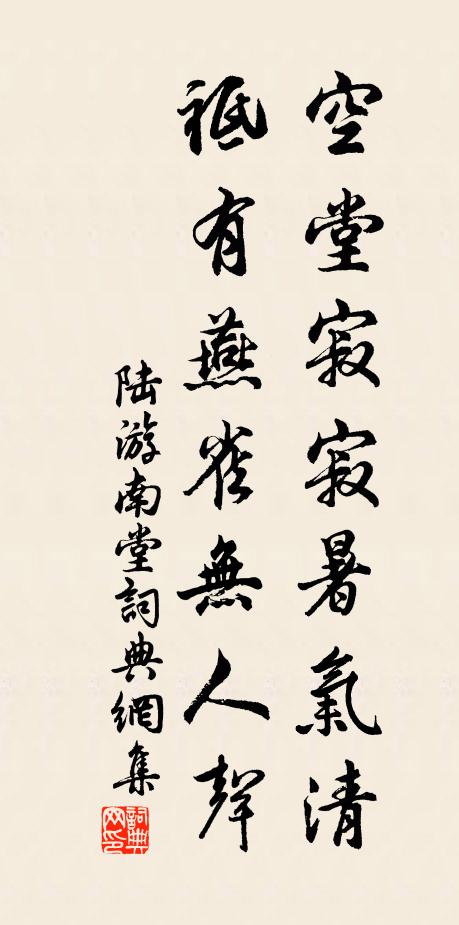 空堂寂寂暑氣清
祗有燕雀無人聲
陆游南堂詞典網集
詞典网印